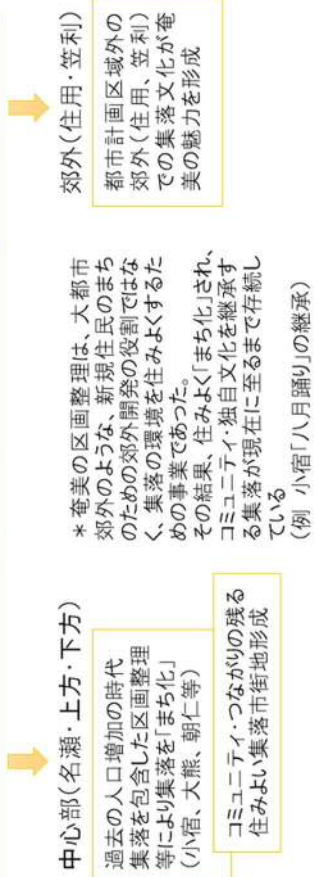 中心部(名瀬・上方・下方)
過去の人口増加の時代
集落を包含した区画整理
等により集落を「まち化」
(小宿、大熊、朝仁等)
コミュニティ・つながりの残る
住みよい集落市街地形成
*奄美の区画整理は、大都市
郊外のような、新規住民のまち
のための郊外開発の役割ではな
く、集落の環境を住みよくするた
めの事業であった。
その結果、住みよく「まち化」され、
コミュニティ・独自文化を継承す
る集落が現在に至るまで存続し
ている
(例 小宿「八月踊り」の継承)
郊外(住用・笠利)
都市計画区域外の
郊外(住用、笠利)
での集落文化が奄
美の魅力を形成